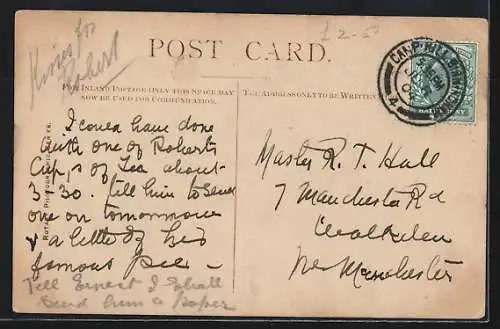 £2-50
Kisses for
Robert
POST CARD.
FOR INLAND POSTAGE ONLY THIS SPACE MAY
NOW BE USED FOR COMMUNICATION.
THE ADDRESS ONLY TO BE WRITTEN
CAMP HILL BIRMINGHAM
HALFPENNY
ROTARY PHOTOGRAPHIC
I could have done
with one of Roberts
Cups of Tea about
3-30. tell him to send
one on tomorrow
& a little of his
famous pie –
Tell Ernest I shall
send him a paper
Master R. T. Hall
7 Manchester Rd
Walkden
Nr Manchester